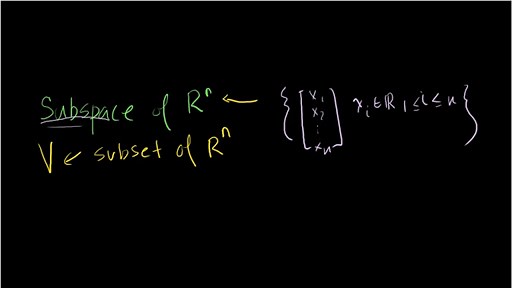 Subspace of Rⁿ ← { [x₁ x₂ ⋮ xₙ] xᵢ ∈ ℝ, 1 ≤ i ≤ n }
V ← subset of Rⁿ